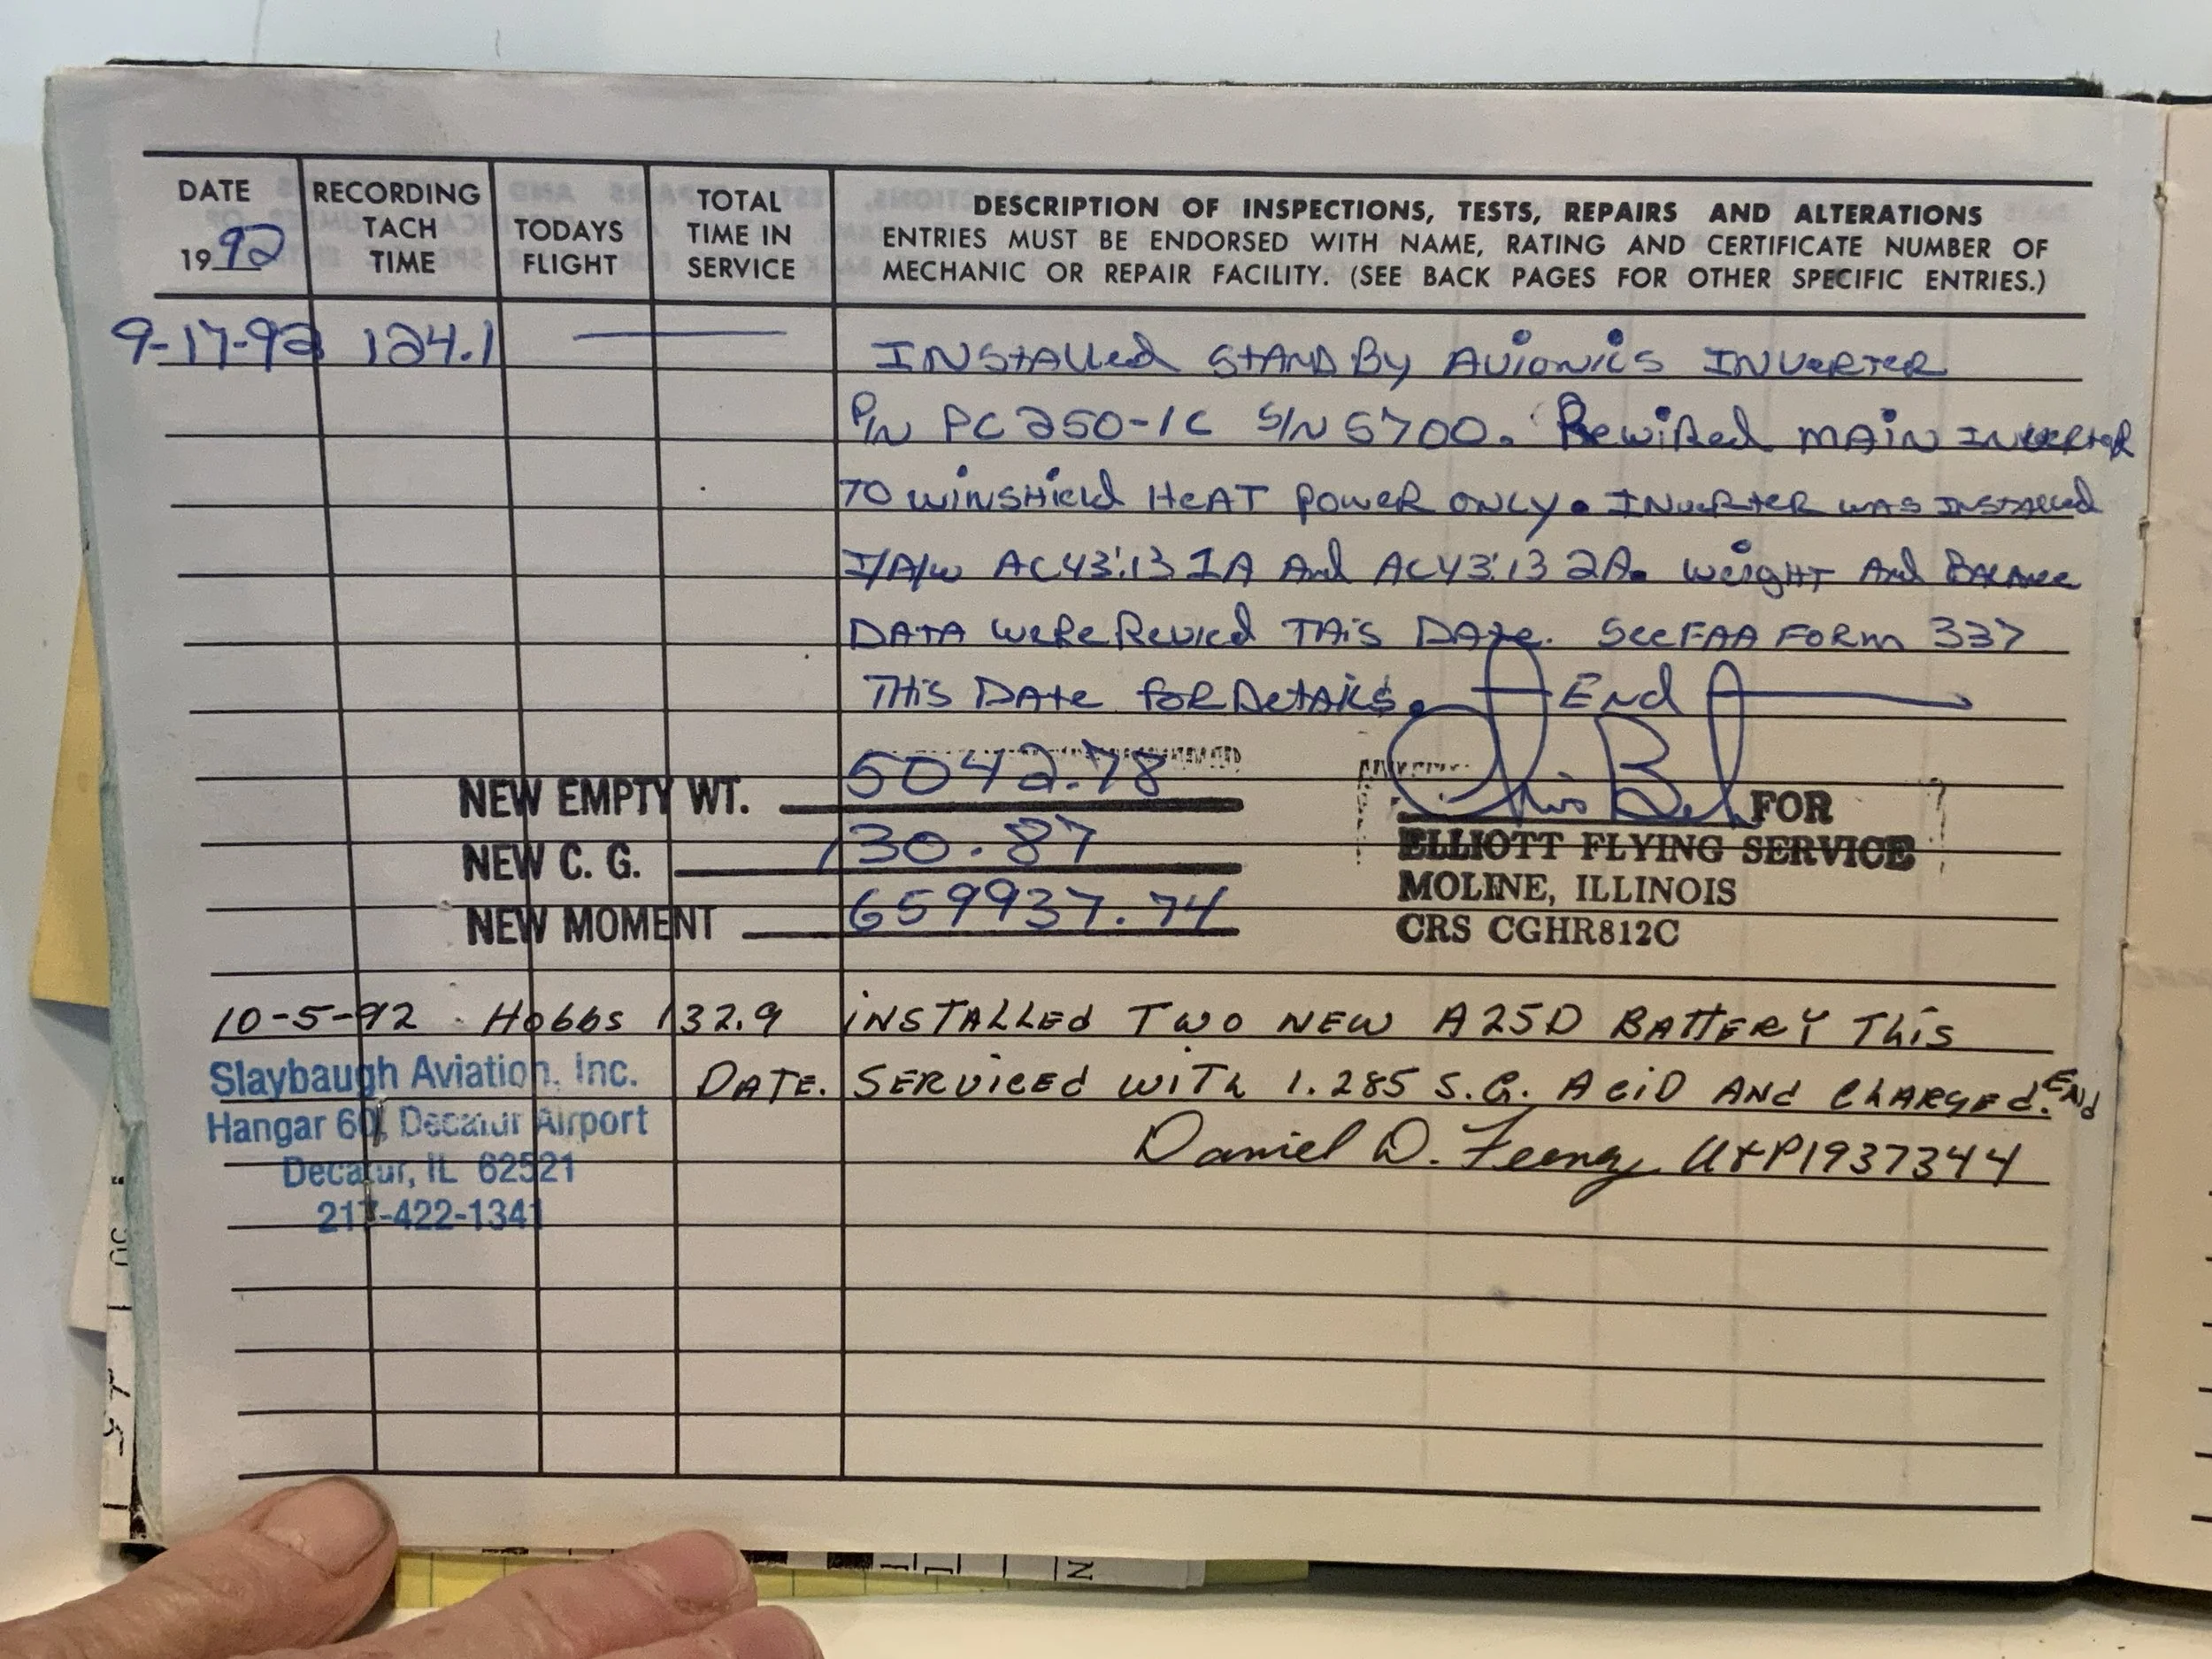 DATE
1992
RECORDING
TACH
TIME
TODAYS
FLIGHT
TOTAL
TIME IN
SERVICE
DESCRIPTION OF INSPECTIONS, TESTS, REPAIRS AND ALTERATIONS
ENTRIES MUST BE ENDORSED WITH NAME, RATING AND CERTIFICATE NUMBER OF
MECHANIC OR REPAIR FACILITY. (SEE BACK PAGES FOR OTHER SPECIFIC ENTRIES.)
9-17-92 124.1 INSTAlled STANDBy AvioNics INVeRTER
P/N PC250-1C S/N 5700. RewiRed MAIN INVERTER
TO WINSHield HeAT PoweR ONLY. INVERTER WAS INSTAlled
I/A/W AC43.13 1A And AC43.13 2A. Weight And BALANce
DATA weRe Revied THis DATe. See FAA FoRm 337
THis DATe foR DetAils. End
NEW EMPTY WT. 5042.78
NEW C. G. 130.87
NEW MOMENT 659937.74
FOR
ELLIOTT FLYING SERVICE
MOLINE, ILLINOIS
CRS CGHR812C
10-5-92 Hobbs 132.9 iNSTALLEd Two NEW A25D BATTERY This
DATE. SERViCEd WiTh 1.285 S.G. ACiD ANd ChARgEd. ENd
Daniel D. Feeney A&P1937344
Slaybaugh Aviation, Inc.
Hangar 60, Decatur Airport
Decatur, IL 62521
217-422-1341